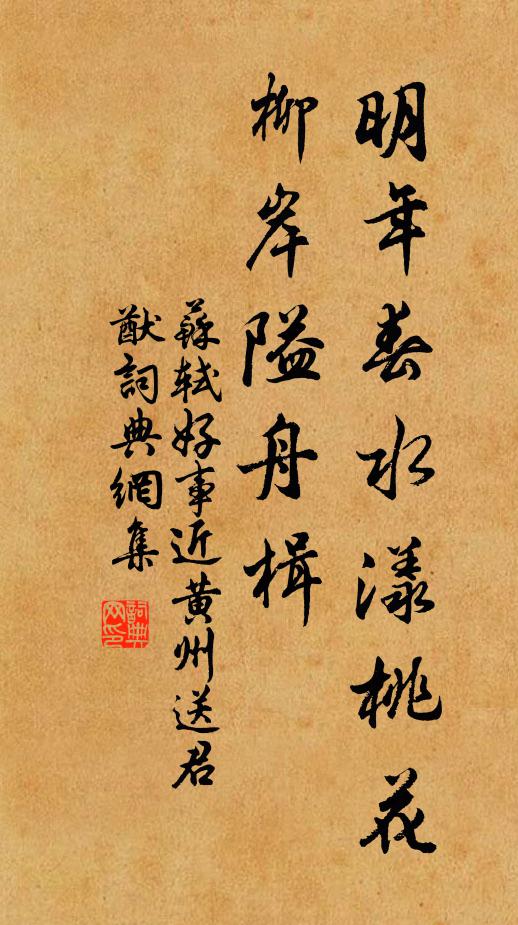 明年春水漾桃花
柳岸隘舟楫
蘇軾好事近黄州送君
猷詞典網集
詞典網印